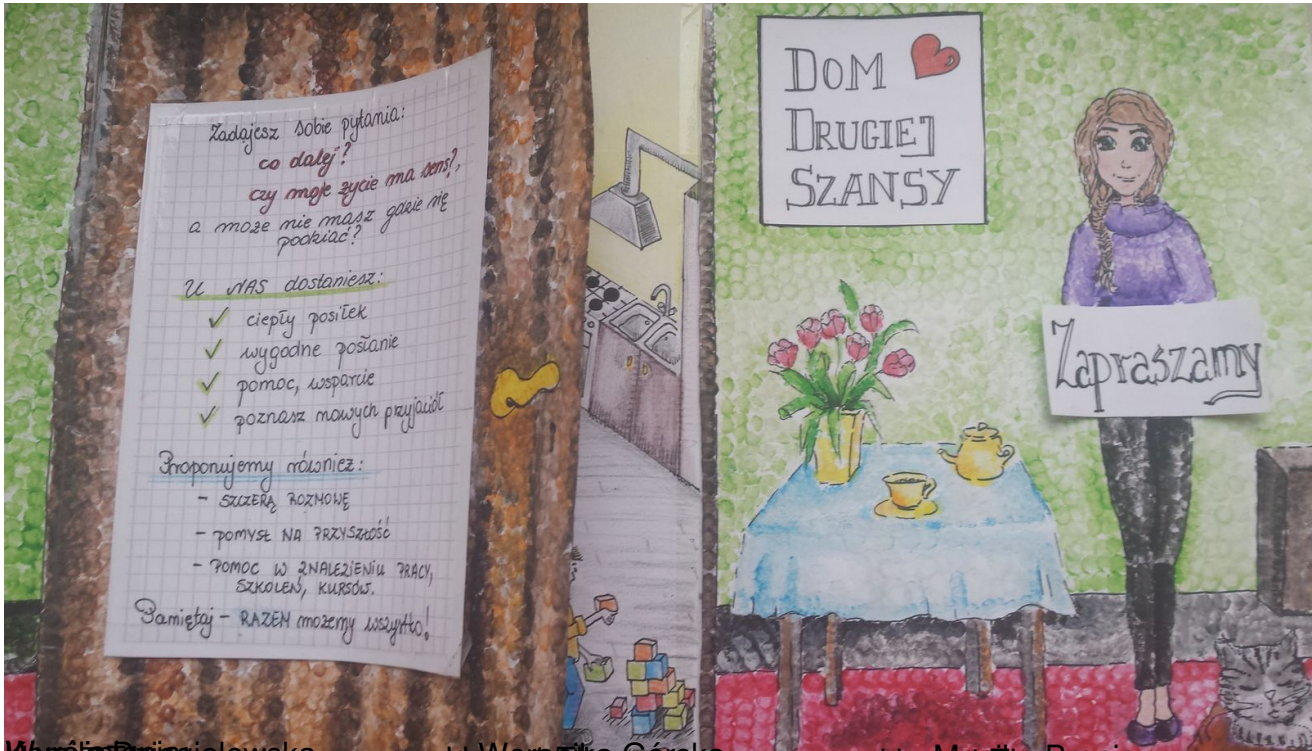 Zadajesz sobie pytania:
co dalej?
czy moje życie ma sens?,
a może nie masz gdzie się
podziać?
U NAS dostaniesz:
ciepły posiłek
wygodne posłanie
pomoc, wsparcie
poznasz nowych przyjaciół
Proponujemy również:
- SZCZERĄ ROZMOWĘ
- POMYSŁ NA PRZYSZŁOŚĆ
- POMOC W ZNALEZIENIU PRACY,
SZKOLEŃ, KURSÓW.
Pamiętaj - RAZEM możemy wszystko!
DOM
DRUGIEJ
SZANSY
Zapraszamy